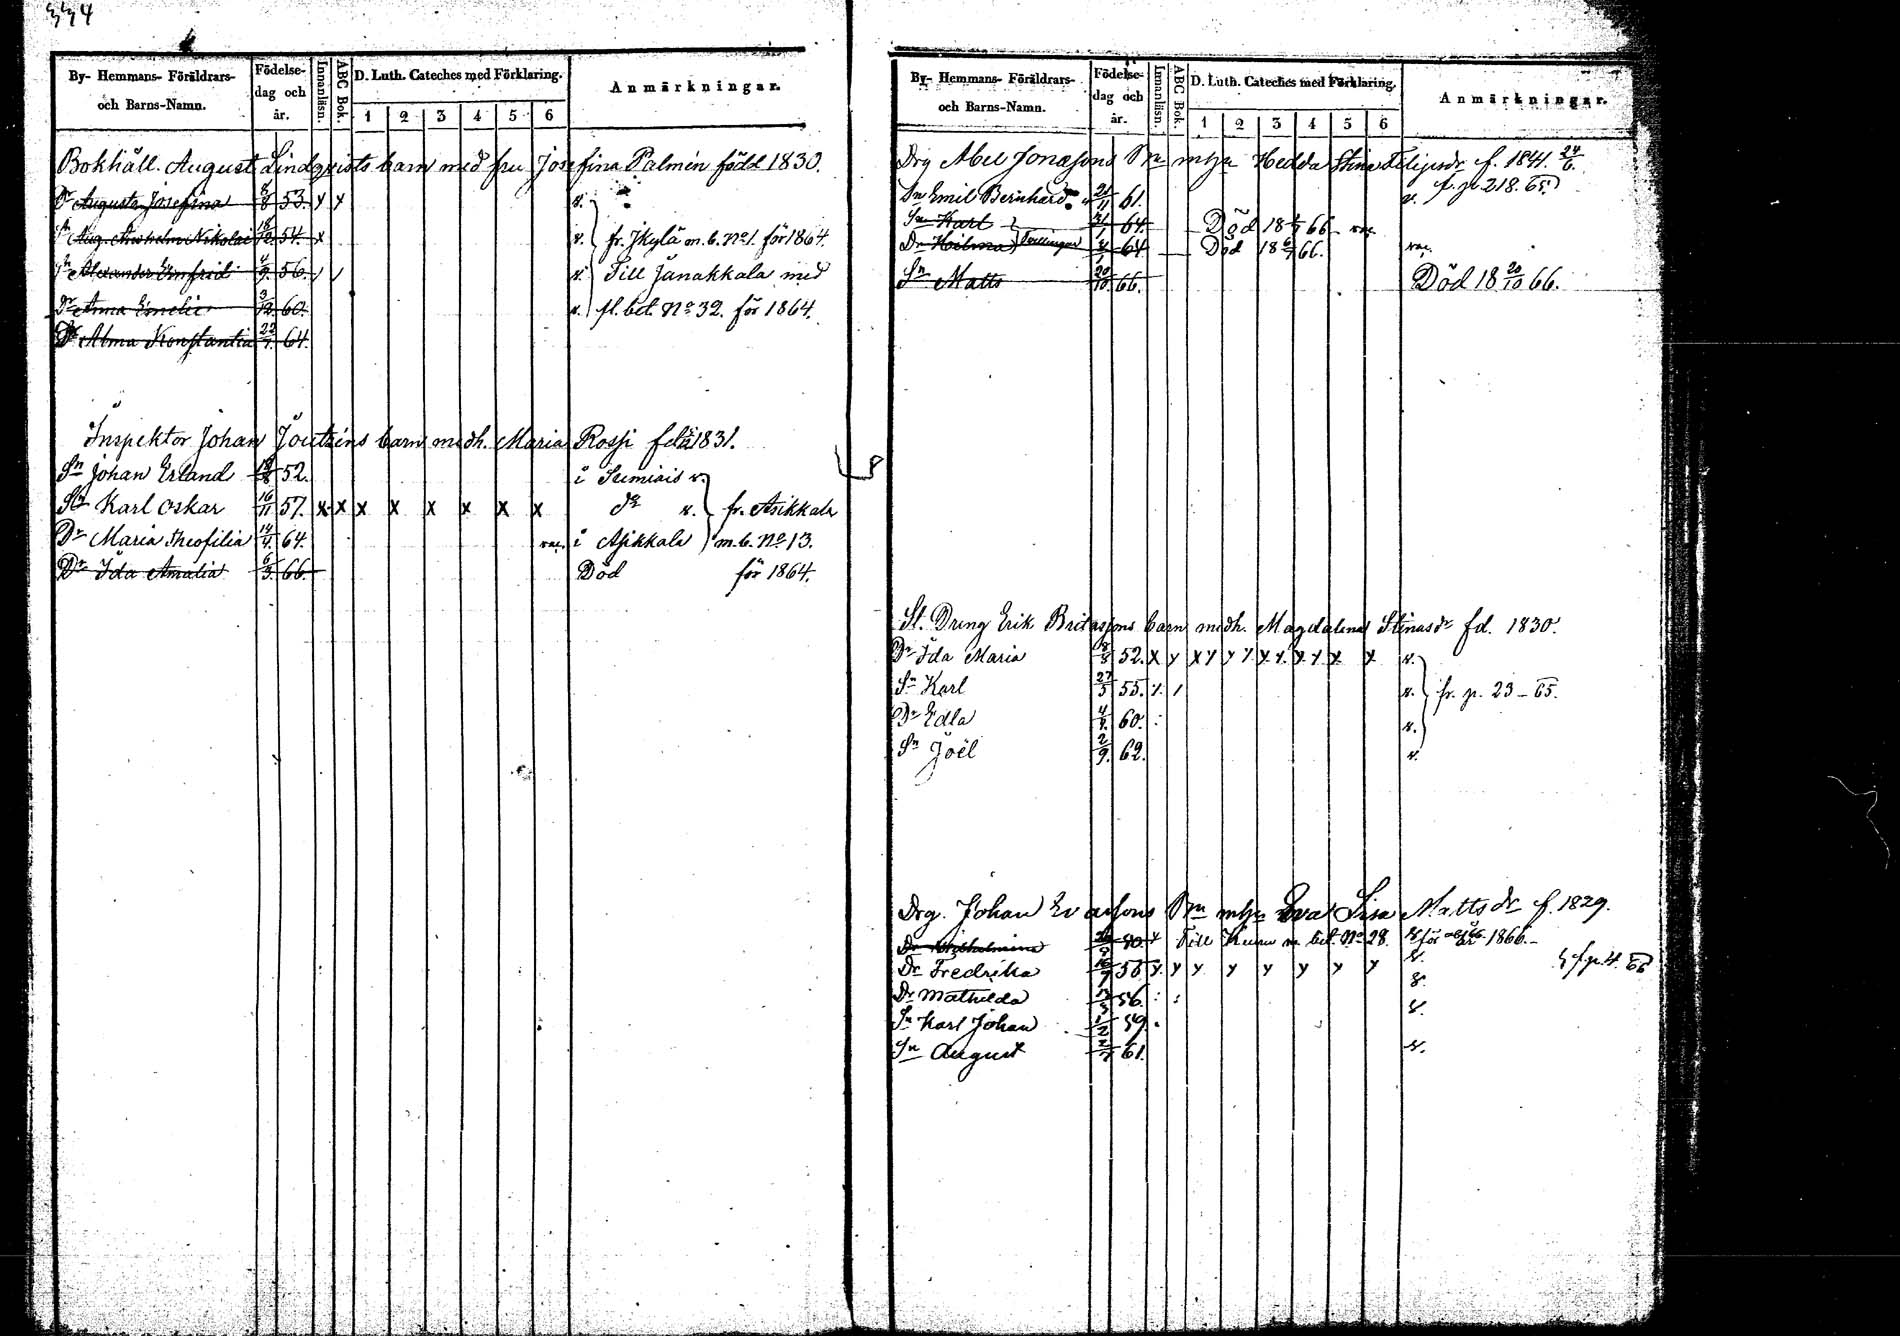 334
By- Hemmans- Föräldrars- och Barns-Namn. Födelse- dag och år. Innanläsn. ABC Bok. D. Luth. Cateches med Förklaring. 1 2 3 4 5 6 Anmärkningar.
Bokhåll. August Lindqvists barn med fru Josefina Palmén född 1830.
Dr Augusta Josefina 8/8 53. x x v.
Sn Aug. Anshelm Nikolai 54. x v. fr. Jkylä m.b. No 1. för 1864.
Sn Alexander Emfrid 4/9 56. v. Till Janakkala med
Dr Anna Emelie 3/12 60. v. fl. bet. No 32. för 1864.
Dr Alma Konstantia 22/7 64.
Inspektor Johan barn medh. Maria Rossi fd 1831.
Sn Johan Erland 52. i v.
Sn Karl Oskar 16/11 57. x x x x x x x x do v. fr. Asikkala
Dr Maria Theofilia 14/4 64. vac. i Asikkala m.b. No 13.
Dr Ida Amalia 6/3 66. Död för 1864.
By- Hemmans- Föräldrars- och Barns-Namn. Födelse- dag och år. Innanläsn. ABC Bok. D. Luth. Cateches med Förklaring. 1 2 3 4 5 6 Anmärkningar.
Drg Abel Jonæsons mhu Hedda Stina f. 1841. 24/6.
f. p. 218. 65.
Sn Emil Bernhard 21/11 61. v.
Sn Karl 31/1 64. Död 18 66. vac.
Dr Tvillingar 64 Död 18 66. vac.
Sn Matts 20/10 66. Död 18 20/10 66.
Sl. Dreng Erik Britasons barn medh. Magdalena Stinasdr fd. 1830.
Dr Ida Maria 8/8 52. x y x y y y x x x y x x v.
Sn Karl 27/5 55. v. fr. p. 23-65.
Dr Edla 60. v.
Sn Joël 2/9. 62. v.
Drg. Johan Evasons mhu Eva Lisa Mattsdr f. 1829.
Dr Wilhelmina Till m. bet. No 28. för 1866.
Dr Fredrika 16/7 55 y. y y y y y y y v. f. p. 4. 66
Dr Mathilda 56. v.
Sn Karl Johan 1/2 59. v.
Sn August 2/7 61. v.